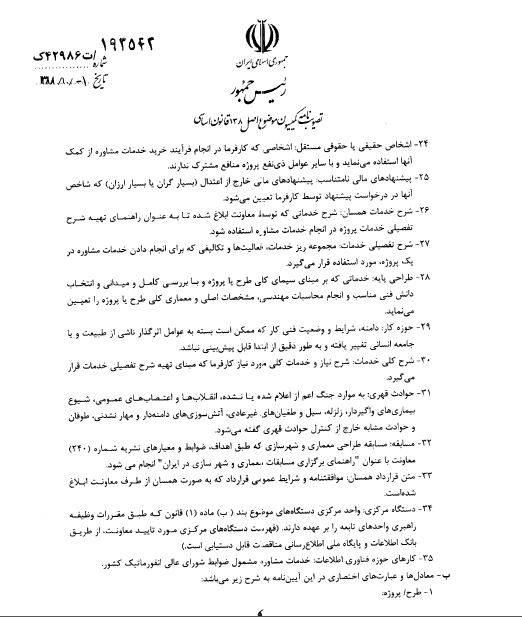 ۱۹۳۵۴۲/ت۴۲۹۸۶ک
شماره
جمهوری اسلامی ایران
تاریخ ۱۳۸۸/۱۰/۰۱
رئیس جمهور
تصویب نامه کمیسیون موضوع اصل ۱۳۸ قانون اساسی
۲۴- اشخاص حقیقی یا حقوقی مستقل: اشخاصی که کارفرما در انجام فرآیند خرید خدمات مشاوره از کمک
آنها استفاده می‌نماید و با سایر عوامل ذی‌نفع پروژه منافع مشترک ندارند.
۲۵- پیشنهادهای مالی نامتناسب: پیشنهادهای مالی خارج از اعتدال (بسیار گران یا بسیار ارزان) که شاخص
آنها در درخواست پیشنهاد توسط کارفرما تعیین می‌شود.
۲۶- شرح خدمات همسان: شرح خدماتی که توسط معاونت ابلاغ شده تا به عنوان راهنمای تهیه شرح
تفصیلی خدمات پروژه در انجام خدمات مشاوره استفاده شود.
۲۷- شرح تفصیلی خدمات: مجموعه ریز خدمات، فعالیت‌ها و تکالیفی که برای انجام دادن خدمات مشاوره در
یک پروژه، مورد استفاده قرار می‌گیرد.
۲۸- طراحی پایه: خدماتی که بر مبنای سیمای کلی طرح یا پروژه و با بررسی کامل و میدانی و انتخاب
دانش فنی مناسب و انجام محاسبات مهندسی، مشخصات اصلی و معماری کلی طرح یا پروژه را تعیین
می‌نماید.
۲۹- حوزه کار: دامنه، شرایط و وضعیت فنی کار که ممکن است بسته به عوامل اثرگذار ناشی از طبیعت و یا
جامعه انسانی تغییر یافته و به طور دقیق از ابتدا قابل پیش‌بینی نباشد.
۳۰- شرح کلی خدمات: شرح نیاز و خدمات کلی مورد نیاز کارفرما که مبنای تهیه شرح تفصیلی خدمات قرار
می‌گیرد.
۳۱- حوادث قهری: به موارد جنگ اعم از اعلام شده یا نشده، انقلاب‌ها و اعتصاب‌های عمومی، شیوع
بیماری‌های واگیردار، زلزله، سیل و طغیان‌های غیرعادی، آتش‌سوزی‌های دامنه‌دار و مهار نشدنی، طوفان
و حوادث مشابه خارج از کنترل حوادث قهری گفته می‌شود.
۳۲- مسابقه: مسابقه طراحی معماری و شهرسازی که طبق اهداف، ضوابط و معیارهای نشریه شماره (۲۴۰)
معاونت با عنوان "راهنمای برگزاری مسابقات معماری و شهر سازی در ایران" انجام می شود.
۳۳- متن قرارداد همسان: موافقتنامه و شرایط عمومی قرارداد که به صورت همسان از طرف معاونت ابلاغ
شده‌است.
۳۴- دستگاه مرکزی: واحد مرکزی دستگاه‌های موضوع بند (ب) ماده (۱) قانون که طبق مقررات وظیفه
راهبری واحدهای تابعه را بر عهده دارند. (فهرست دستگاه‌های مرکزی مورد تایید معاونت، از طریق
بانک اطلاعات و پایگاه ملی اطلاع‌رسانی مناقصات قابل دستیابی است.)
۳۵- کارهای حوزه فناوری اطلاعات: خدمات مشاوره مشمول ضوابط شورای عالی انفورماتیک کشور.
ب- معادل‌ها و عبارت‌های اختصاری در این آیین‌نامه به شرح زیر می‌باشد:
۱- طرح/ پروژه: